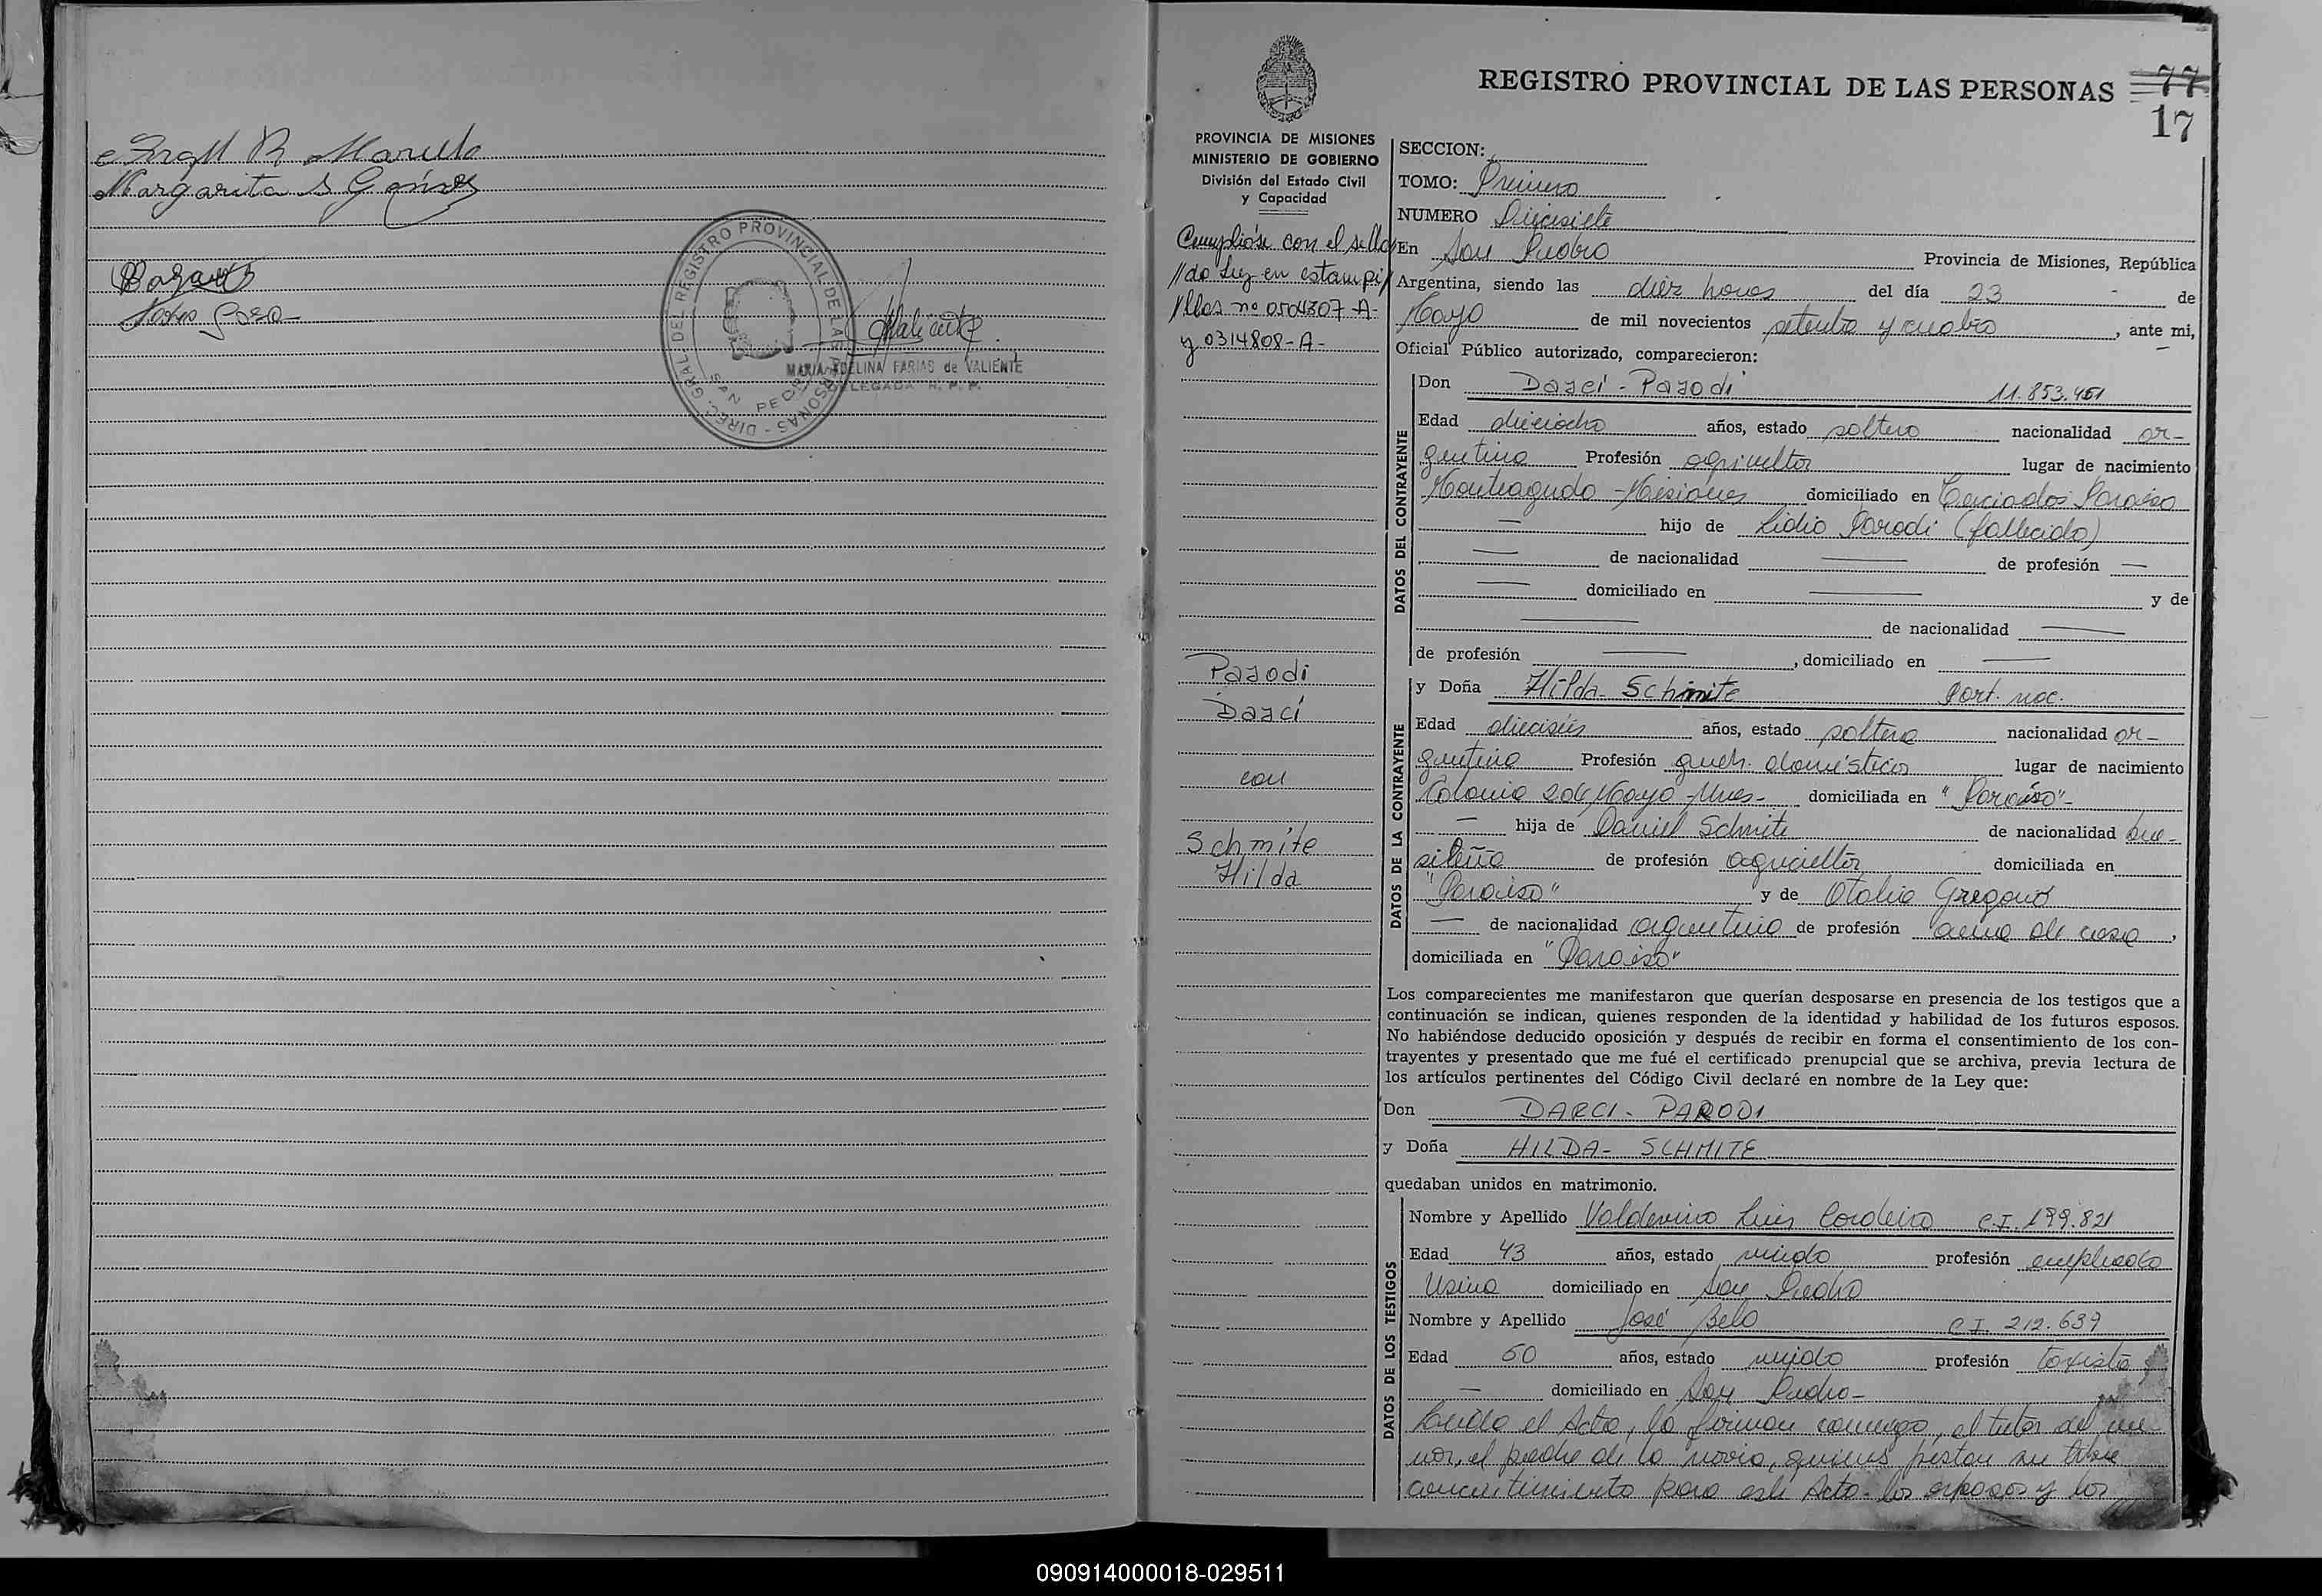 Margarita S
REGISTRO PROVINCIAL DE LAS PERSONAS
DIREC. GRAL DEL REGISTRO PROVINCIAL DE LAS PERSONAS -
SAN PEDRO
MARIA ADELINA FARIAS de VALIENTE
DELEGADA R. P. P.
77
17
PROVINCIA DE MISIONES
MINISTERIO DE GOBIERNO
División del Estado Civil
y Capacidad
Cumplióse con el sella
//do Ley en estampi/
/llas nº 0504307-A-
y 0314808-A-
Parodi
Darcí
con
Schmite
Hilda
SECCION:
TOMO: Primero
NUMERO Diecisiete
En San Pedro Provincia de Misiones, República
Argentina, siendo las diez horas del día 23 de
Mayo de mil novecientos setenta y cuatro, ante mi,
Oficial Público autorizado, comparecieron:
DATOS DEL CONTRAYENTE
Don Darcí - Parodi 11.853.451
Edad dieciocho años, estado soltero nacionalidad ar-
gentina Profesión agricultor lugar de nacimiento
Monteagudo - Misiones domiciliado en Paraíso
— hijo de Lidio Parodi (fallecido)
— de nacionalidad — de profesión —
— domiciliado en — y de
— de nacionalidad —
de profesión —, domiciliado en —
DATOS DE LA CONTRAYENTE
y Doña Hilda - Schmite Part. nac.
Edad dieciséis años, estado soltera nacionalidad ar-
gentina Profesión queh. domésticos lugar de nacimiento
Colonia Mayo - Mnes - domiciliada en "Paraíso"-
— hija de Daniel Schmite de nacionalidad bra-
sileña de profesión agricultor domiciliada en
"Paraíso" y de Otalia
— de nacionalidad argentina de profesión ama de casa,
domiciliada en "Paraíso"
Los comparecientes me manifestaron que querían desposarse en presencia de los testigos que a
continuación se indican, quienes responden de la identidad y habilidad de los futuros esposos.
No habiéndose deducido oposición y después de recibir en forma el consentimiento de los con-
trayentes y presentado que me fué el certificado prenupcial que se archiva, previa lectura de
los artículos pertinentes del Código Civil declaré en nombre de la Ley que:
Don DARCI - PARODI
y Doña HILDA - SCHMITE
quedaban unidos en matrimonio.
DATOS DE LOS TESTIGOS
Nombre y Apellido Valdevino Luis Cordeiro C.I. 199.821
Edad 43 años, estado viudo profesión empleado
Usina domiciliado en San Pedro
Nombre y Apellido José Belo C.I. 212.639
Edad 50 años, estado viudo profesión taxista
— domiciliado en San Pedro -
Leída el Acta, la firman conmigo, el tutor del me-
nor, el padre de la novia, quienes prestan su libre
concentimiento para este Acto - los esposos y los
090914000018-029511